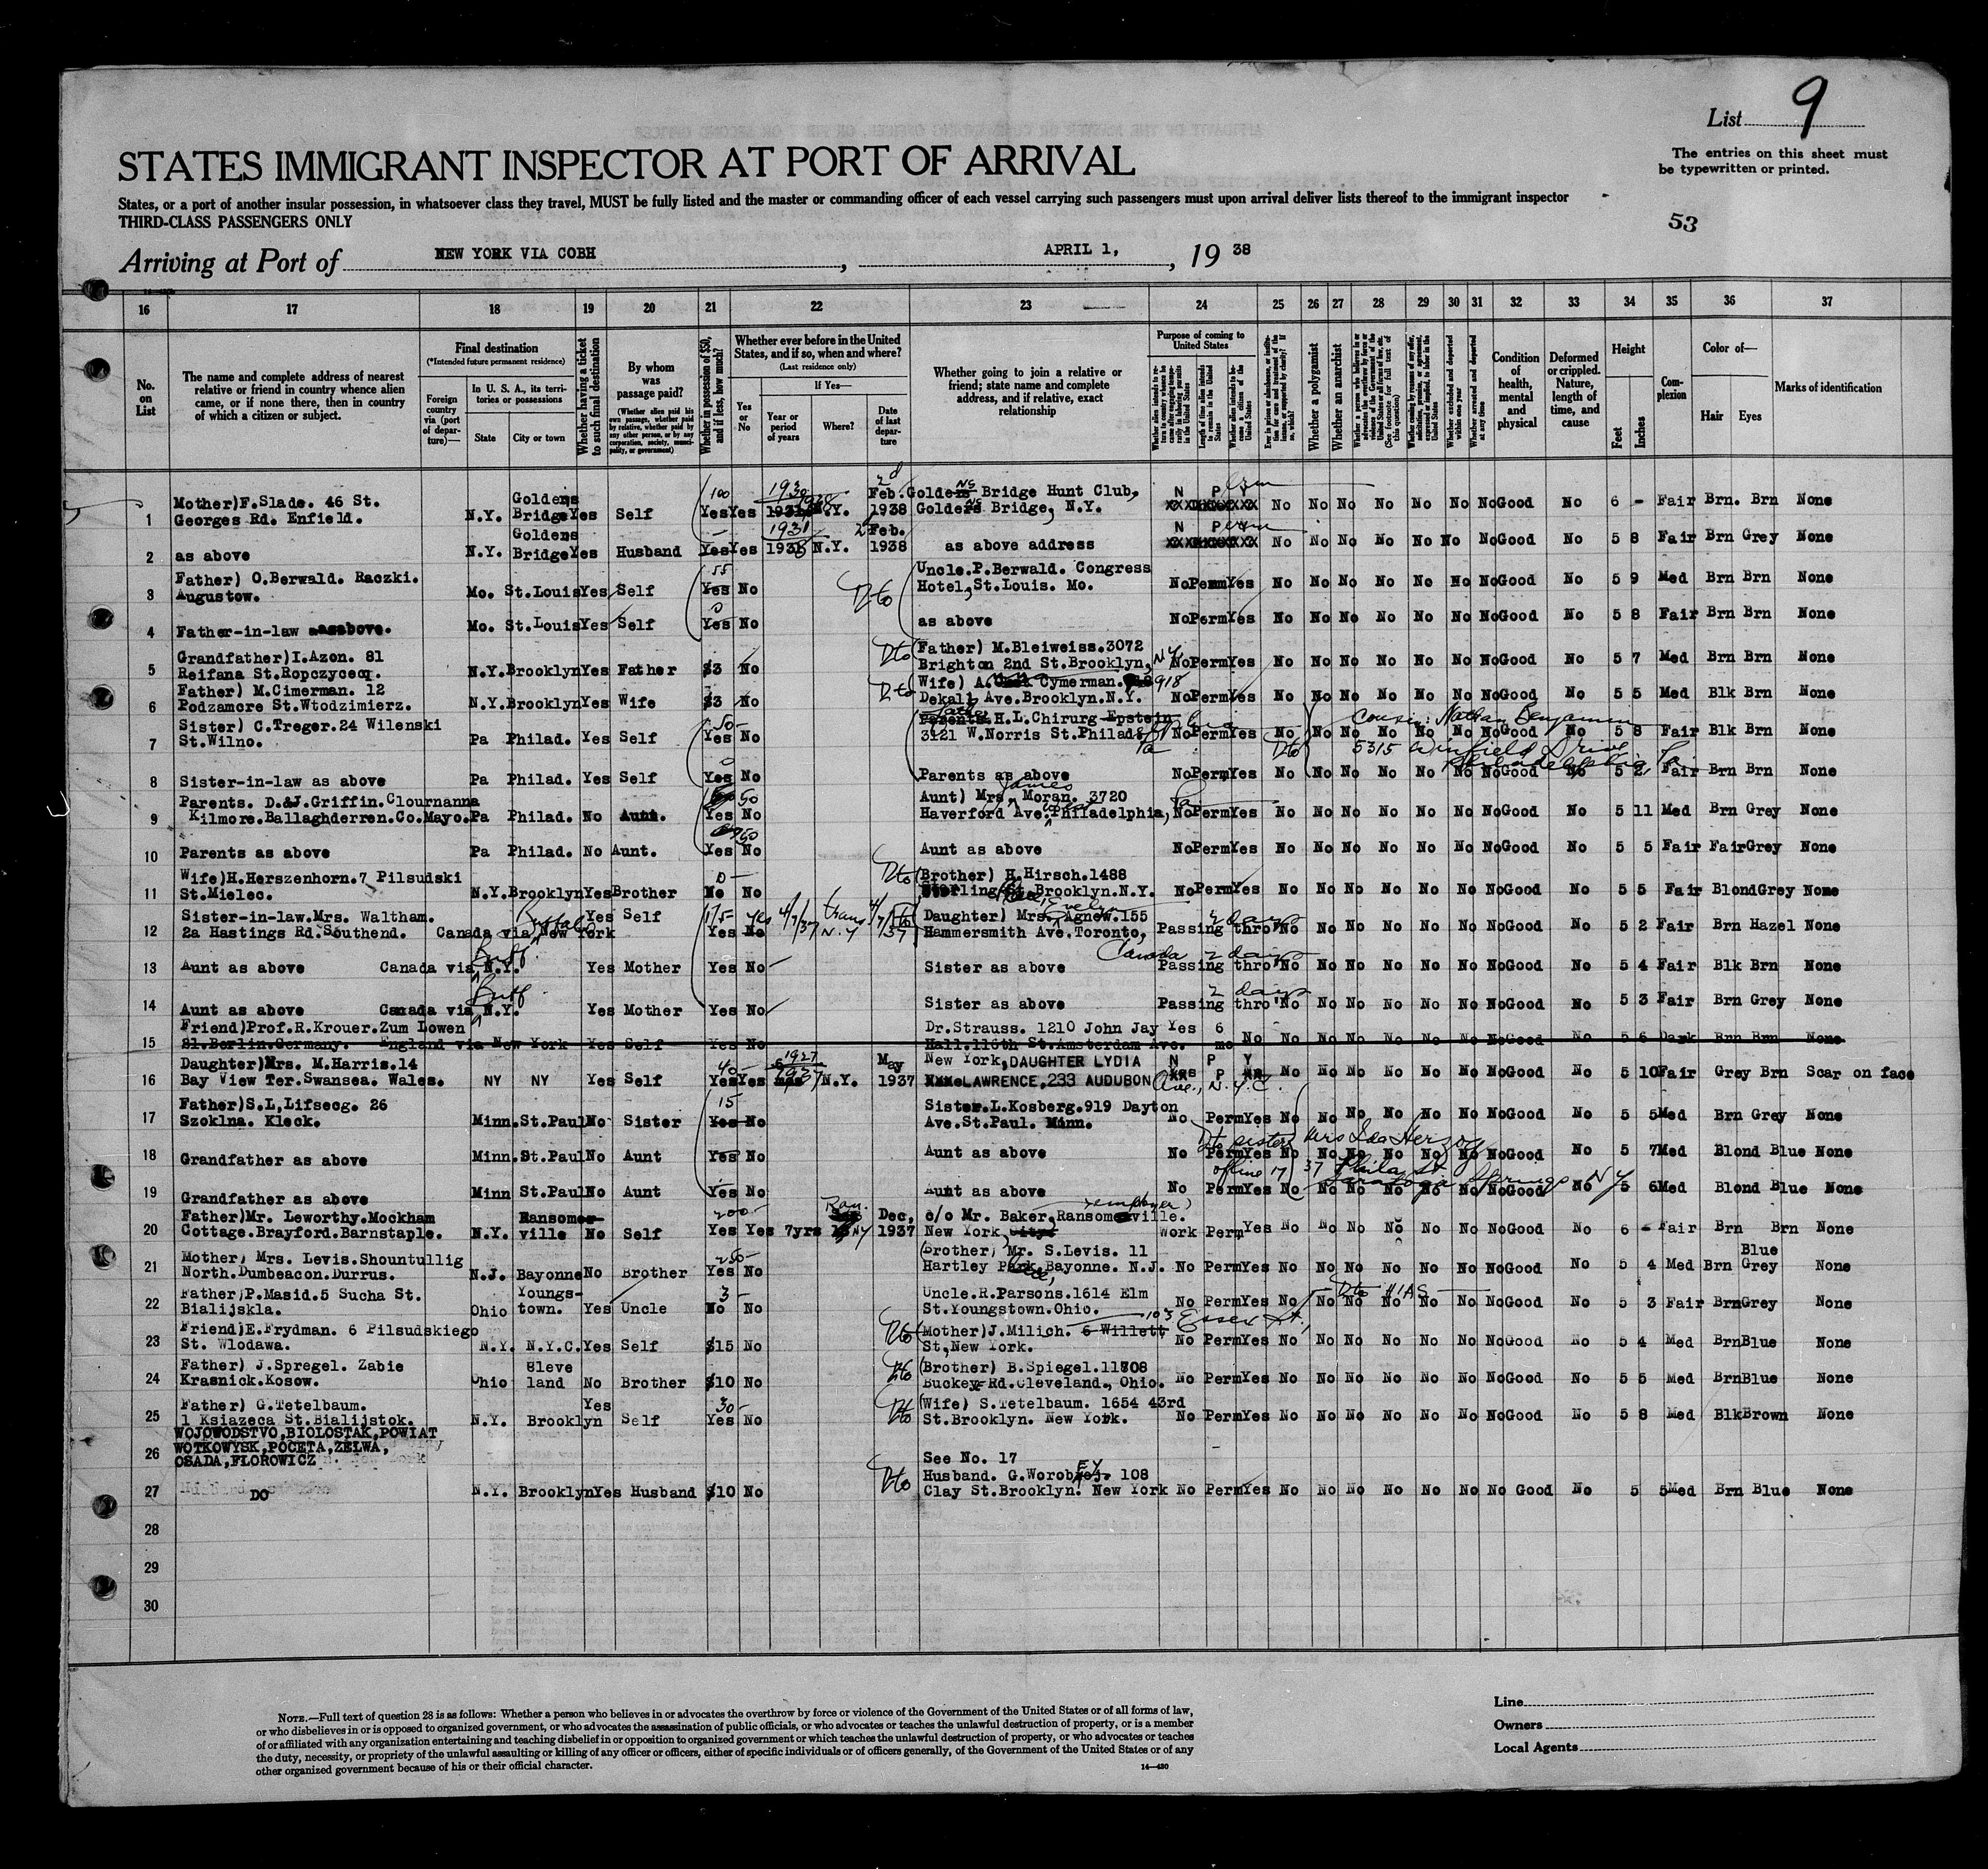 List 9
The entries on this sheet must
be typewritten or printed.
STATES IMMIGRANT INSPECTOR AT PORT OF ARRIVAL
States, or a port of another insular possession, in whatsoever class they travel, MUST be fully listed and the master or commanding officer of each vessel carrying such passengers must upon arrival deliver lists thereof to the immigrant inspector
THIRD-CLASS PASSENGERS ONLY
53
Arriving at Port of NEW YORK VIA COBH, APRIL 1, 19 38
16 17 18 19 20 21 22 23 24 25 26 27 28 29 30 31 32 33 34 35 36 37
No. on List
The name and complete address of nearest relative or friend in country whence alien came, or if none there, then in country of which a citizen or subject.
Final destination
(*Intended future permanent residence)
Foreign country via (port of departure)—
In U. S. A., its territories or possessions
State
City or town
Whether having a ticket to such final destination
By whom was passage paid?
(Whether alien paid his own passage, whether paid by relative, whether paid by any other person, or by any corporation, society, municipality, or government)
Whether in possession of $50, and if less, how much?
Whether ever before in the United States, and if so, when and where?
(Last residence only)
Yes or No
If Yes—
Year or period of years
Where?
Date of last departure
Whether going to join a relative or friend; state name and complete address, and if relative, exact relationship
Purpose of coming to United States
Whether a polygamist
Whether an anarchist
Condition of health, mental and physical
Deformed or crippled. Nature, length of time, and cause
Height
Feet
Inches
Complexion
Color of—
Hair Eyes
Marks of identification
1 Mother)F.Slade. 46 St. Georges Rd. Enfield. N.Y. Goldens Bridge Yes Self 100 Yes Yes 1930 N.Y. Feb. 1938 Goldens Bridge Hunt Club, Goldens Bridge, N.Y. N P Y No No No No No No No Good No 6 - Fair Brn. Brn None
2 as above N.Y. Goldens Bridge Yes Husband Yes Yes 1931 1938 N.Y. Feb. 1938 as above address N P No No No No No No No Good No 5 8 Fair Brn Grey None
3 Father) O.Berwald. Raczki. Augustow. Mo. St.Louis Yes Self 55 Yes No Uncle.P.Berwald. Congress Hotel, St.Louis. Mo. No Perm Yes No No No No No No No Good No 5 9 Med Brn Brn None
4 Father-in-law as above. Mo. St.Louis Yes Self 0 Yes No as above No Perm Yes No No No No No No No Good No 5 8 Fair Brn Brn None
5 Grandfather)I.Azon. 81 Reifana St.Ropczyceq. N.Y. Brooklyn Yes Father $3 No Father) M.Bleiweiss.3072 Brighton 2nd St.Brooklyn, N Y No Perm Yes No No No No No No No Good No 5 7 Med Brn Brn None
6 Father) M.Cimerman. 12 Podzamore St.Wtodzimierz. N.Y. Brooklyn Yes Wife $3 No Wife) A. Cymerman. 918 Dekalb Ave.Brooklyn.N.Y. No Perm Yes No No No No No No No Good No 5 5 Med Blk Brn None
7 Sister) C.Treger.24 Wilenski St.Wilno. Pa Philad. Yes Self 50- Yes No Parents. H.L.Chirurg Epstein 3121 W.Norris St.Philad. Pa No Perm Yes No No No No No No No Good No 5 8 Fair Blk Brn None
Cousin: Nathan Benjamin
5315 Winfield Drive
Philadelphia, Pa
8 Sister-in-law as above Pa Philad. Yes Self 0 Yes No Parents as above No Perm Yes No No No No No No No Good No 5 2 Fair Brn Brn None
9 Parents. D.&J.Griffin.Clournanna Kilmore.Ballaghderren.Co.Mayo. Pa Philad. No Aunt. 50 Yes No Aunt) Mrs. James Moran. 3720 Haverford Ave. Philadelphia, Pa No Perm Yes No No No No No No No Good No 5 11 Med Brn Grey None
10 Parents as above Pa Philad. No Aunt. 50 Yes No Aunt as above No Perm Yes No No No No No No No Good No 5 5 Fair Fair Grey None
11 Wife)H.Herszenhorn.7 Pilsudski St.Mielec. N.Y. Brooklyn Yes Brother 0- No No Brother) H.Hirsch.1488 Sterling Brooklyn.N.Y. No Perm Yes No No No No No No No Good No 5 5 Fair Blond Grey None
12 Sister-in-law.Mrs. Waltham. 2a Hastings Rd.Southend. Canada via New York Buffalo Yes Self 175- Yes No yes 4/7/37 trans N.Y 4/7/37 Daughter) Mrs. Evelyn Agnew.155 Hammersmith Ave.Toronto, Canada Passing thro' 2 days No No No No No No No Good No 5 2 Fair Brn Hazel None
13 Aunt as above Canada via N.Y. Buff. Yes Mother Yes No Sister as above Passing thro' 2 days No No No No No No No Good No 5 4 Fair Blk Brn None
14 Aunt as above Canada via N.Y. Buff. Yes Mother Yes No Sister as above Passing thro' 2 days No No No No No No No Good No 5 3 Fair Brn Grey None
15 Friend)Prof.R.Krouer.Zum Lowen 21.Berlin.Germany. England via New York Yes Self Yes No Dr.Strauss. 1210 John Jay Hall.116th St.Amsterdam Ave. Yes 6 mo No No No No No No No Good No 5 6 Dark Brn Brn None
16 Daughter)Mrs. M.Harris.14 Bay View Ter.Swansea. Wales. NY NY Yes Self 40- Yes Yes 1927 1937 N.Y. May 1937 New York, DAUGHTER LYDIA LAWRENCE, 233 AUDUBON Ave., N.Y.C. N P Y No No No No No No No Good No 5 10 Fair Grey Brn Scar on face
17 Father)S.L,Lifsecg. 26 Szoklna. Kleck. Minn. St.Paul No Sister 15 Yes No Sister.L.Kosberg.919 Dayton Ave.St.Paul. Minn. No Perm Yes No No No No No No No Good No 5 5 Med Brn Grey None
18 Grandfather as above Minn. St.Paul No Aunt Yes No Aunt as above No Perm Yes No No No No No No No Good No 5 7 Med Blond Blue None
Dto sister Mrs Ida Herzog
of line 17 37 Phila St
Saratoga Springs N Y
19 Grandfather as above Minn St.Paul No Aunt Yes No Aunt as above No Perm Yes No No No No No No No Good No 5 6 Med Blond Blue None
20 Father)Mr. Leworthy.Mockham Cottage.Brayford.Barnstaple. N.Y. Ransomeville No Self 200- Yes Yes 7yrs Ran. NY Dec, 1937 c/o Mr. Baker, (employer) Ransomeville. New York Work Perm Yes No No No No No No No Good No 6 - Fair Brn Brn None
21 Mother, Mrs. Levis.Shountullig North.Dumbeacon.Durrus. N.J. Bayonne No Brother 250- Yes No Brother, Mr. S.Levis. 11 Hartley Park Place, Bayonne. N.J. No Perm Yes No No No No No No No Good No 5 4 Med Brn Blue Grey None
22 Father,P.Masid.5 Sucha St. Bialijskla. Ohio Youngstown. Yes Uncle 3- No No Uncle.R.Parsons.1614 Elm St.Youngstown.Ohio. No Perm Yes No Dto HIAS No No No No No No Good No 5 3 Fair Brn Grey None
23 Friend)E.Frydman. 6 Pilsudskiego St. Wlodawa. N.Y. N.Y.C. Yes Self $15 No Dto Mother)J.Milich. 6 Willett 103 Essex St, St,New York. No Perm Yes No No No No No No No Good No 5 4 Med Brn Blue None
24 Father) J.Spregel. Zabie Krasnick.Kosow. Ohio Cleveland No Brother $10 No Dto Brother) B.Spiegel.11808 Buckey Rd.Cleveland., Ohio. No Perm Yes No No No No No No No Good No 5 5 Med Brn Blue None
25 Father) G.Tetelbaum. 1 Ksiazeca St.Bialijstok. N.Y. Brooklyn Yes Self 30- Yes No Dto Wife) S.Tetelbaum. 1654 43rd St.Brooklyn. New York. No Perm Yes No No No No No No No Good No 5 8 Med Blk Brown None
26 WOJOWODSTVO,BIOLOSTAK,POWIAT WOTKOWYSK,POCETA,ZELWA, OSADA,FLOROWICZ See No. 17
27 DO N.Y. Brooklyn Yes Husband $10 No Dto Husband. G.Worobey. 108 Clay St.Brooklyn. New York No Perm Yes No No No No No No No Good No 5 5 Med Brn Blue None
28
29
30
NOTE.—Full text of question 28 is as follows: Whether a person who believes in or advocates the overthrow by force or violence of the Government of the United States or of all forms of law,
or who disbelieves in or is opposed to organized government, or who advocates the assassination of public officials, or who advocates or teaches the unlawful destruction of property, or is a member
of or affiliated with any organization entertaining and teaching disbelief in or opposition to organized government or which teaches the unlawful destruction of property, or who advocates or teaches
the duty, necessity, or propriety of the unlawful assaulting or killing of any officer or officers, either of specific individuals or of officers generally, of the Government of the United States or of any
other organized government because of his or their official character.
14—430
Line
Owners
Local Agents